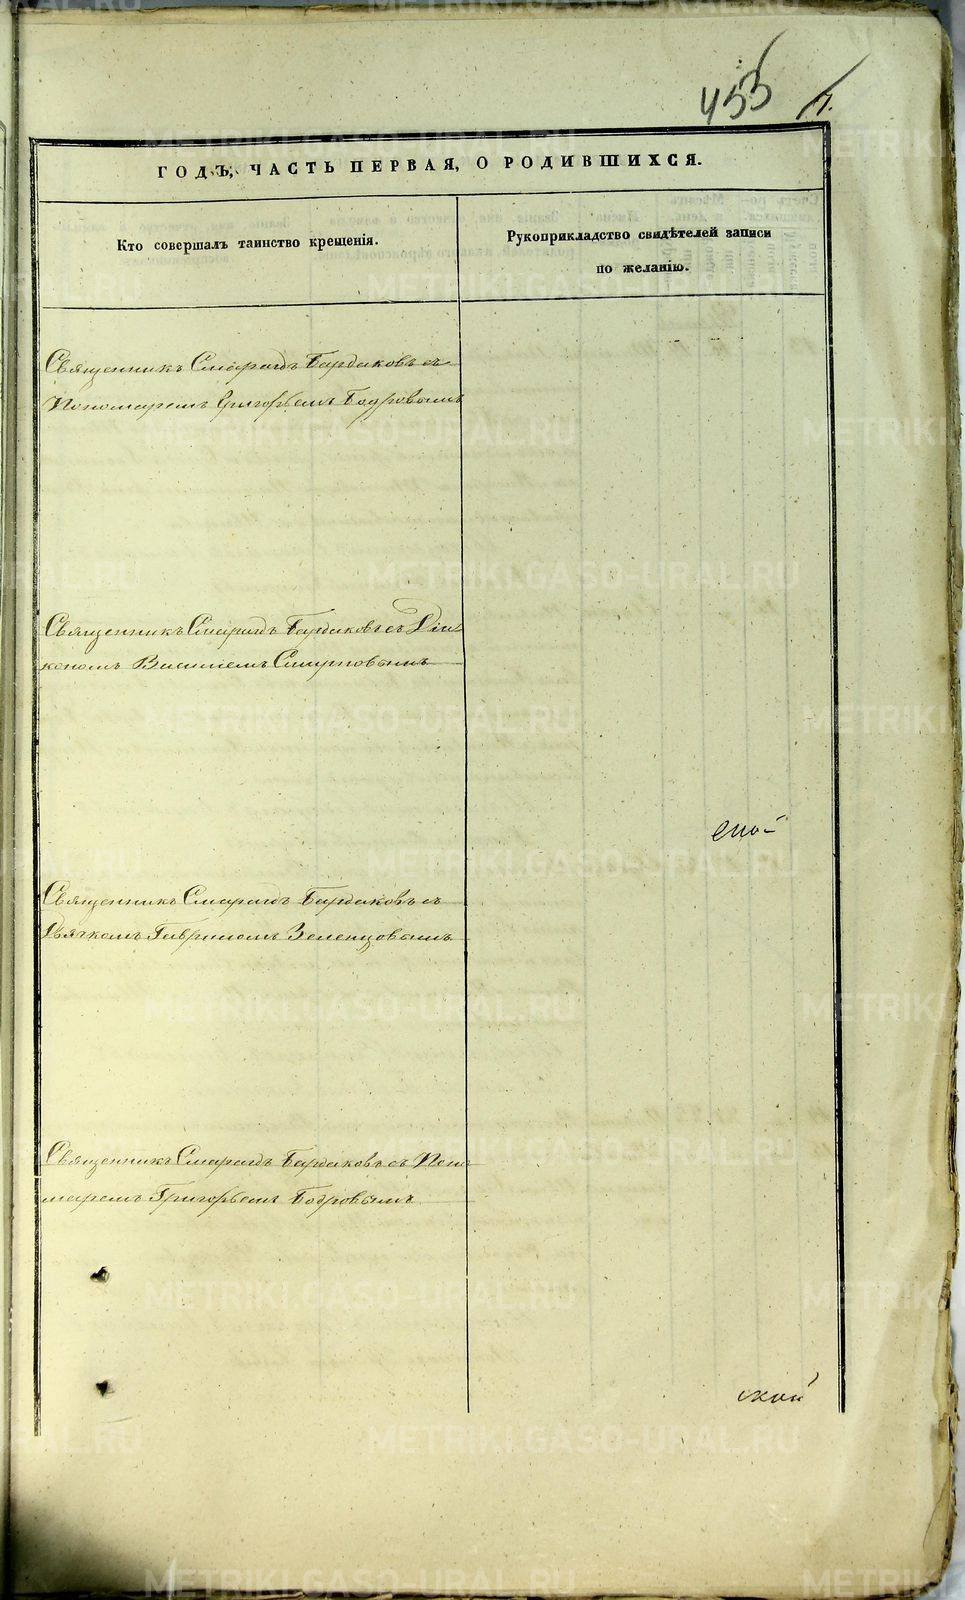 455
ГОДЪ, ЧАСТЬ ПЕРВАЯ, О РОДИВШИХСЯ.
Кто совершалъ таинство крещенія.
Рукоприкладство свидѣтелей записи
по желанію.
Священникъ Смарагдъ Бардаковъ съ
Пономаремъ Григорьемъ Бодровымъ
Священникъ Смарагдъ Бардаковъ съ Діа-
кономъ Василіемъ Смирновымъ
Священникъ Смарагдъ Бардаковъ съ
Дьячкомъ Гавриломъ Зеленцовымъ
Священникъ Смарагдъ Бардаковъ съ Поно-
маремъ Григорьемъ Бодровымъ
ской
METRIKI.GASO-URAL.RU